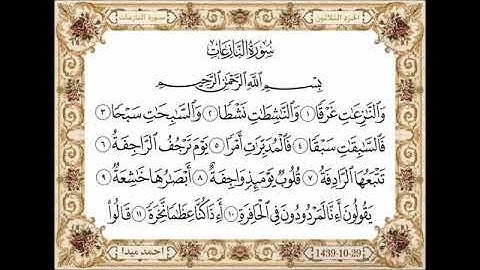 الجزء الثلاثون سورة النازعات
سُورَةُ النَّازِعَاتِ
بِسْمِ اللَّهِ الرَّحْمَٰنِ الرَّحِيمِ
وَالنَّٰزِعَٰتِ غَرْقًا ١ وَالنَّٰشِطَٰتِ نَشْطًا ٢ وَالسَّٰبِحَٰتِ سَبْحًا ٣
فَالسَّٰبِقَٰتِ سَبْقًا ٤ فَالْمُدَبِّرَٰتِ أَمْرًا ٥ يَوْمَ تَرْجُفُ الرَّاجِفَةُ ٦
تَتْبَعُهَا الرَّادِفَةُ ٧ قُلُوبٌ يَوْمَئِذٍ وَاجِفَةٌ ٨ أَبْصَٰرُهَا خَٰشِعَةٌ ٩
يَقُولُونَ أَءِنَّا لَمَرْدُودُونَ فِي الْحَافِرَةِ ١٠ أَءِذَا كُنَّا عِظَٰمًا نَّخِرَةً ١١ قَالُوا
احمد ميدا 1439-10-29